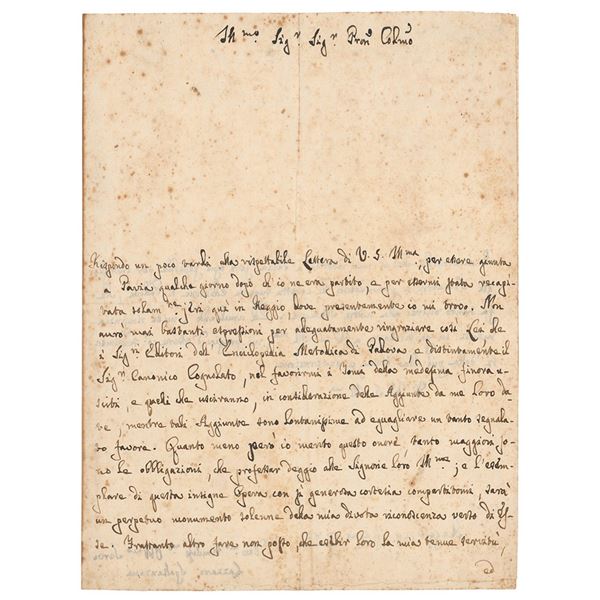 Ill.mo Sig.r Sig.r Pron. Colmo
Rispondo un poco tardi alla rispettabile Lettera di V. S. Ill.ma, per essere giunta
a Pavia qualche giorno dopo ch'io ne era partito, e per essermi stata recapi-
tata solam.te jeri quì in Reggio, dove presentemente io mi trovo. Non
avrò mai bastanti espressioni per adeguatamente ringraziare così Lei che
i Sig.ri Editori dell'Enciclopedia Metodica di Padova e distintaménte il
Sig.r Canonico Cognolato, nel favorirmi i Tomi della medesima finora u-
sciti e quelli che usciranno, in considerazione delle Aggiunte da me Loro da
te, mentre tali Aggiunte sono lontanissime ad eguagliare un tanto segnala-
to favore. Quanto meno però io merito questo onore tanto maggiori so-
no le obbligazioni, che professar deggio alle Signorie loro Ill.me; e l'esem-
plare di questa insigne Opera con sì generosa cortesia compartitomi, sarà
un perpetuo monumento solenne della mia divota riconoscenza verso di Es-
se. Frattanto altro fare non posso, che esibir loro la mia tenue servitù,
ed